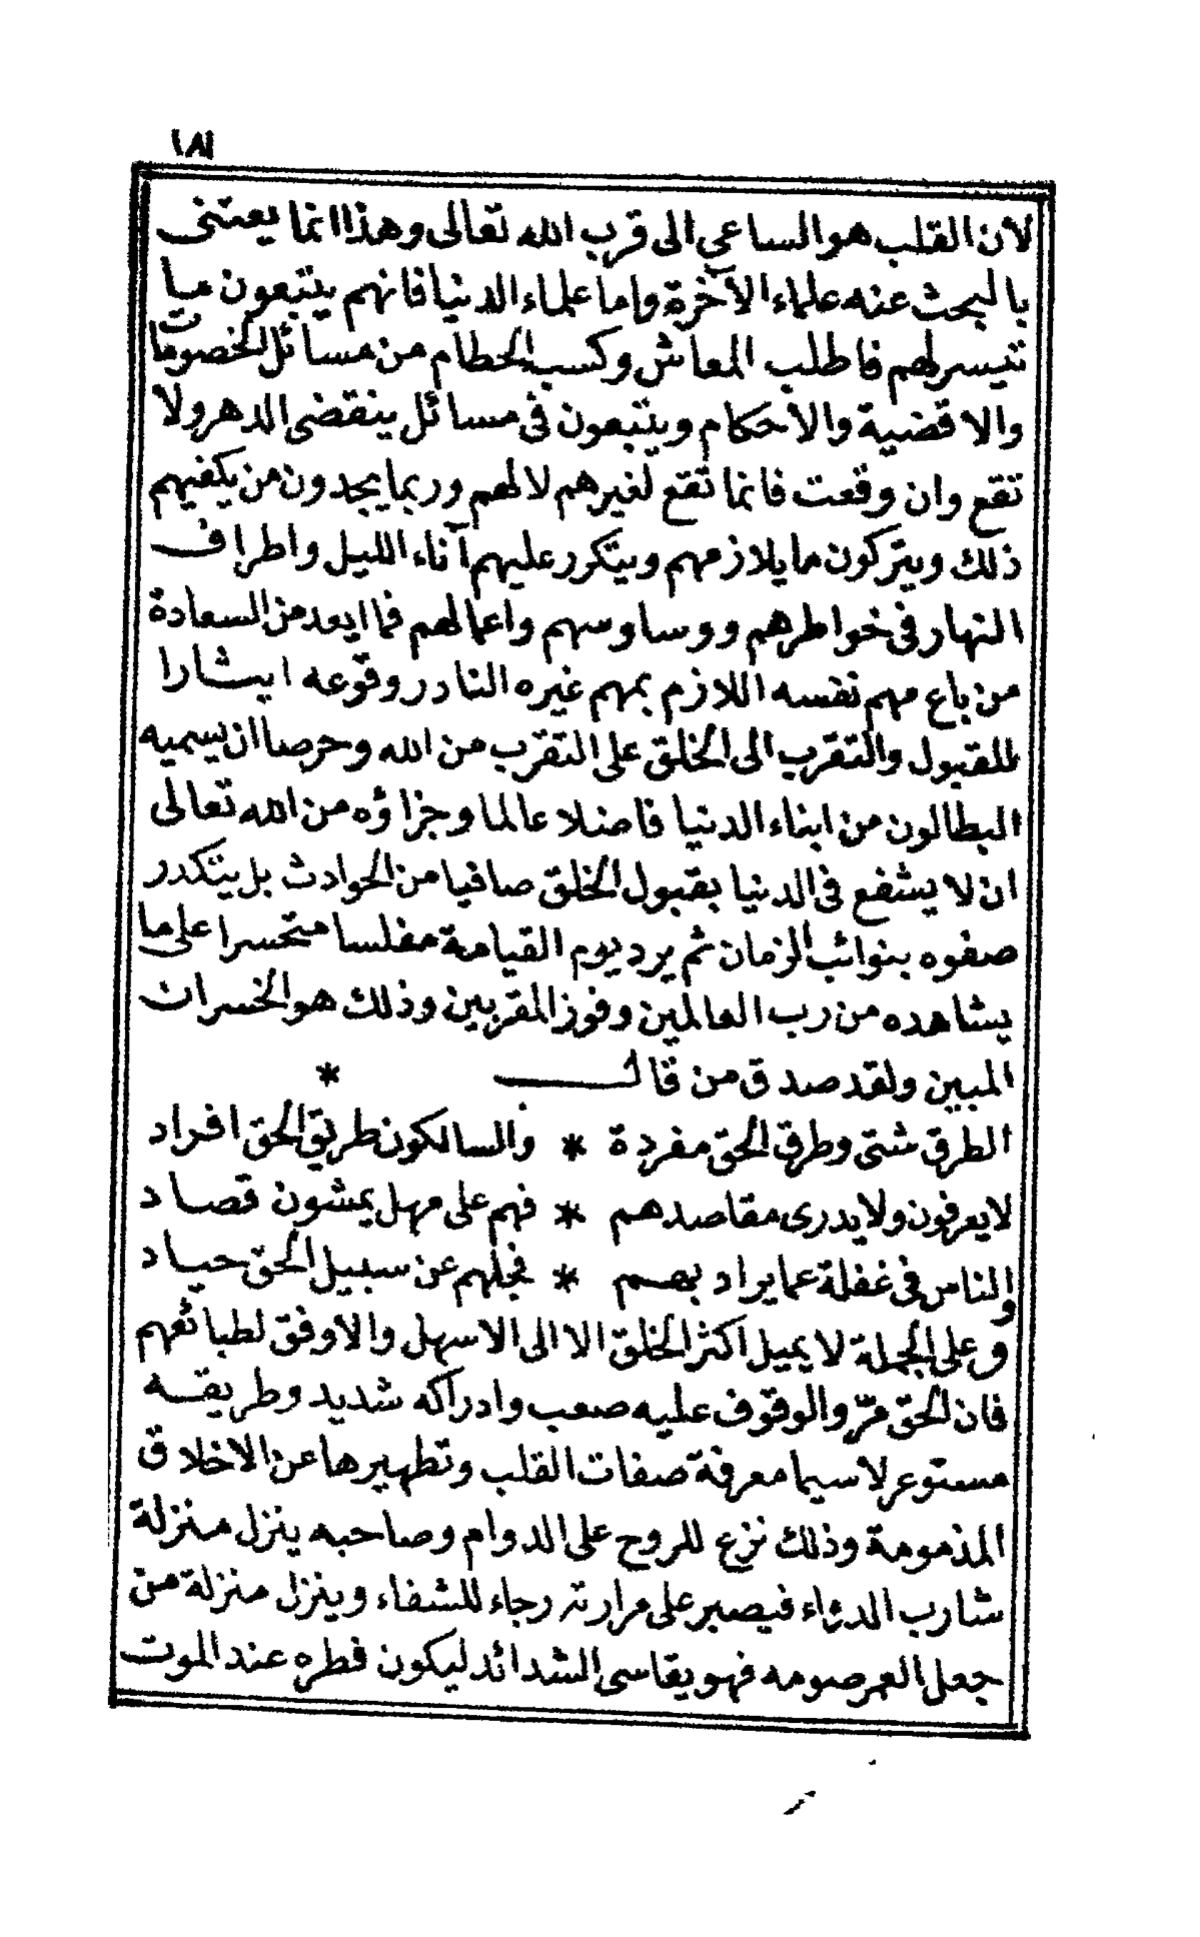 ١٨١
لان القلب هو الساعى الى قرب الله تعالى وهذا انما يعتنى
بالبحث عنه علماء الآخرة واما علماء الدنيا فانهم يتبعون ما
تتيسر لهم فاطلب المعاش وكسب الحطام من مسائل الخصومات
والاقضية والاحكام ويتبعون فى مسائل ينقضى الدهر ولا
تقع وان وقعت فانما تقع لغيرهم لا لهم وربما يجدون من يكفيهم
ذلك ويتركون ما يلازمهم ويتكرر عليهم آناء الليل واطراف
النهار فى خواطرهم ووساوسهم واعمالهم فما ابعد من السعادة
من باع مهم نفسه اللازم بمهم غيره النادر وقوعه ايثارا
للقبول والتقرب الى الخلق على التقرب من الله وحرصا ان يسميه
البطالون من ابناء الدنيا فاضلا عالما وجزاؤه من الله تعالى
ان لا يشفع فى الدنيا بقبول الخلق صافيا من الحوادث بل يتكدر
صفوه بنوائب الزمان ثم يرد يوم القيامة مفلسا متحسرا على ما
يشاهده من رب العالمين وفوز المقربين وذلك هو الخسران
المبين ولقد صدق من قال *
الطرق شتى وطرق الحق مفردة * والسالكون طريق الحق افراد
لا يعرفون ولا يدرى مقاصدهم * فهم على مهل يمشون قصاد
والناس فى غفلة عما يراد بهم * فجلهم عن سبيل الحق حياد
وعلى الجملة لا يميل اكثر الخلق الا الى الاسهل والاوفق لطبائعهم
فان الحق مرّ والوقوف عليه صعب وادراكه شديد وطريقه
مستوعر لا سيما معرفة صفات القلب وتطهيرها عن الاخلاق
المذمومة وذلك نزع للروح على الدوام وصاحبه ينزل منزلة
شارب الدواء فيصبر على مرارته رجاء للشفاء وينزل منزلة من
جعل العمر صومه فهو يقاسى الشدائد ليكون فطره عند الموت